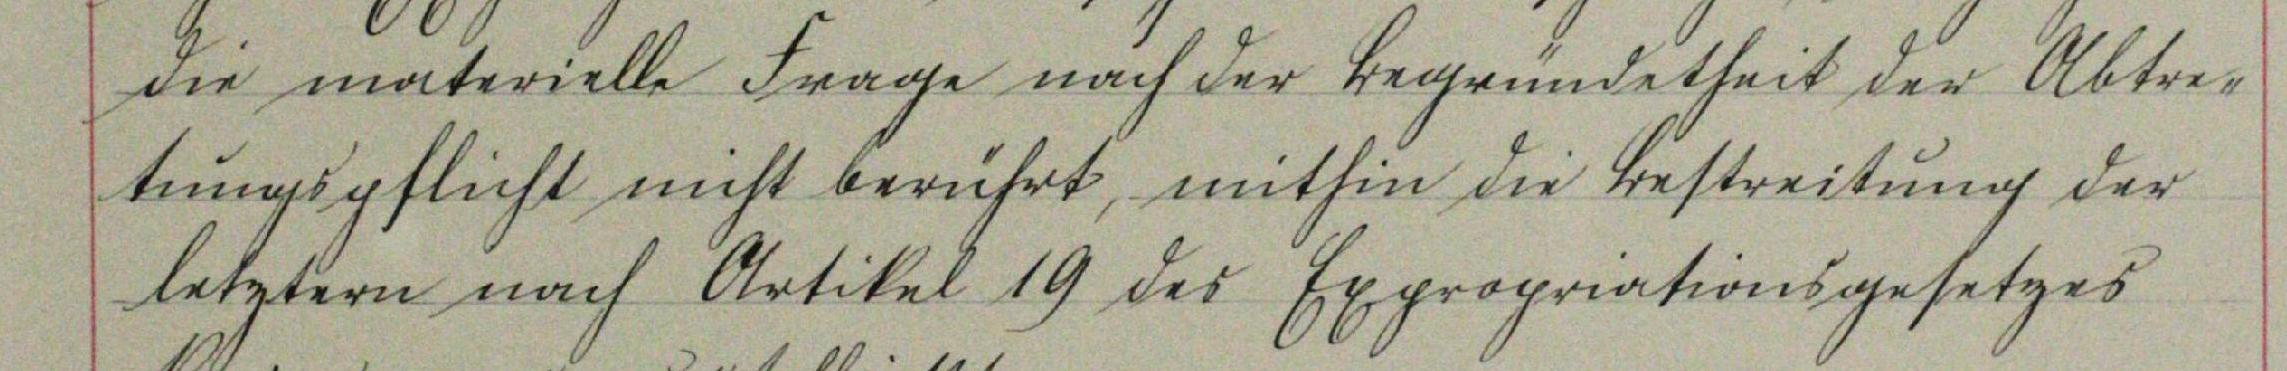 die materielle Frage nach der Begründetheit der Abtre-
tungspflicht nicht berührt, mithin die Bestreitung der
letztern nach Artikel 19 des Expropriationsgesetzes